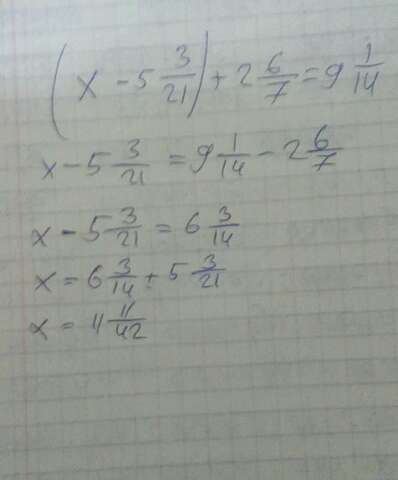 (x - 5 3/21) + 2 6/7 = 9 1/14
x - 5 3/21 = 9 1/14 - 2 6/7
x - 5 3/21 = 6 3/14
x = 6 3/14 + 5 3/21
x = 11 11/42